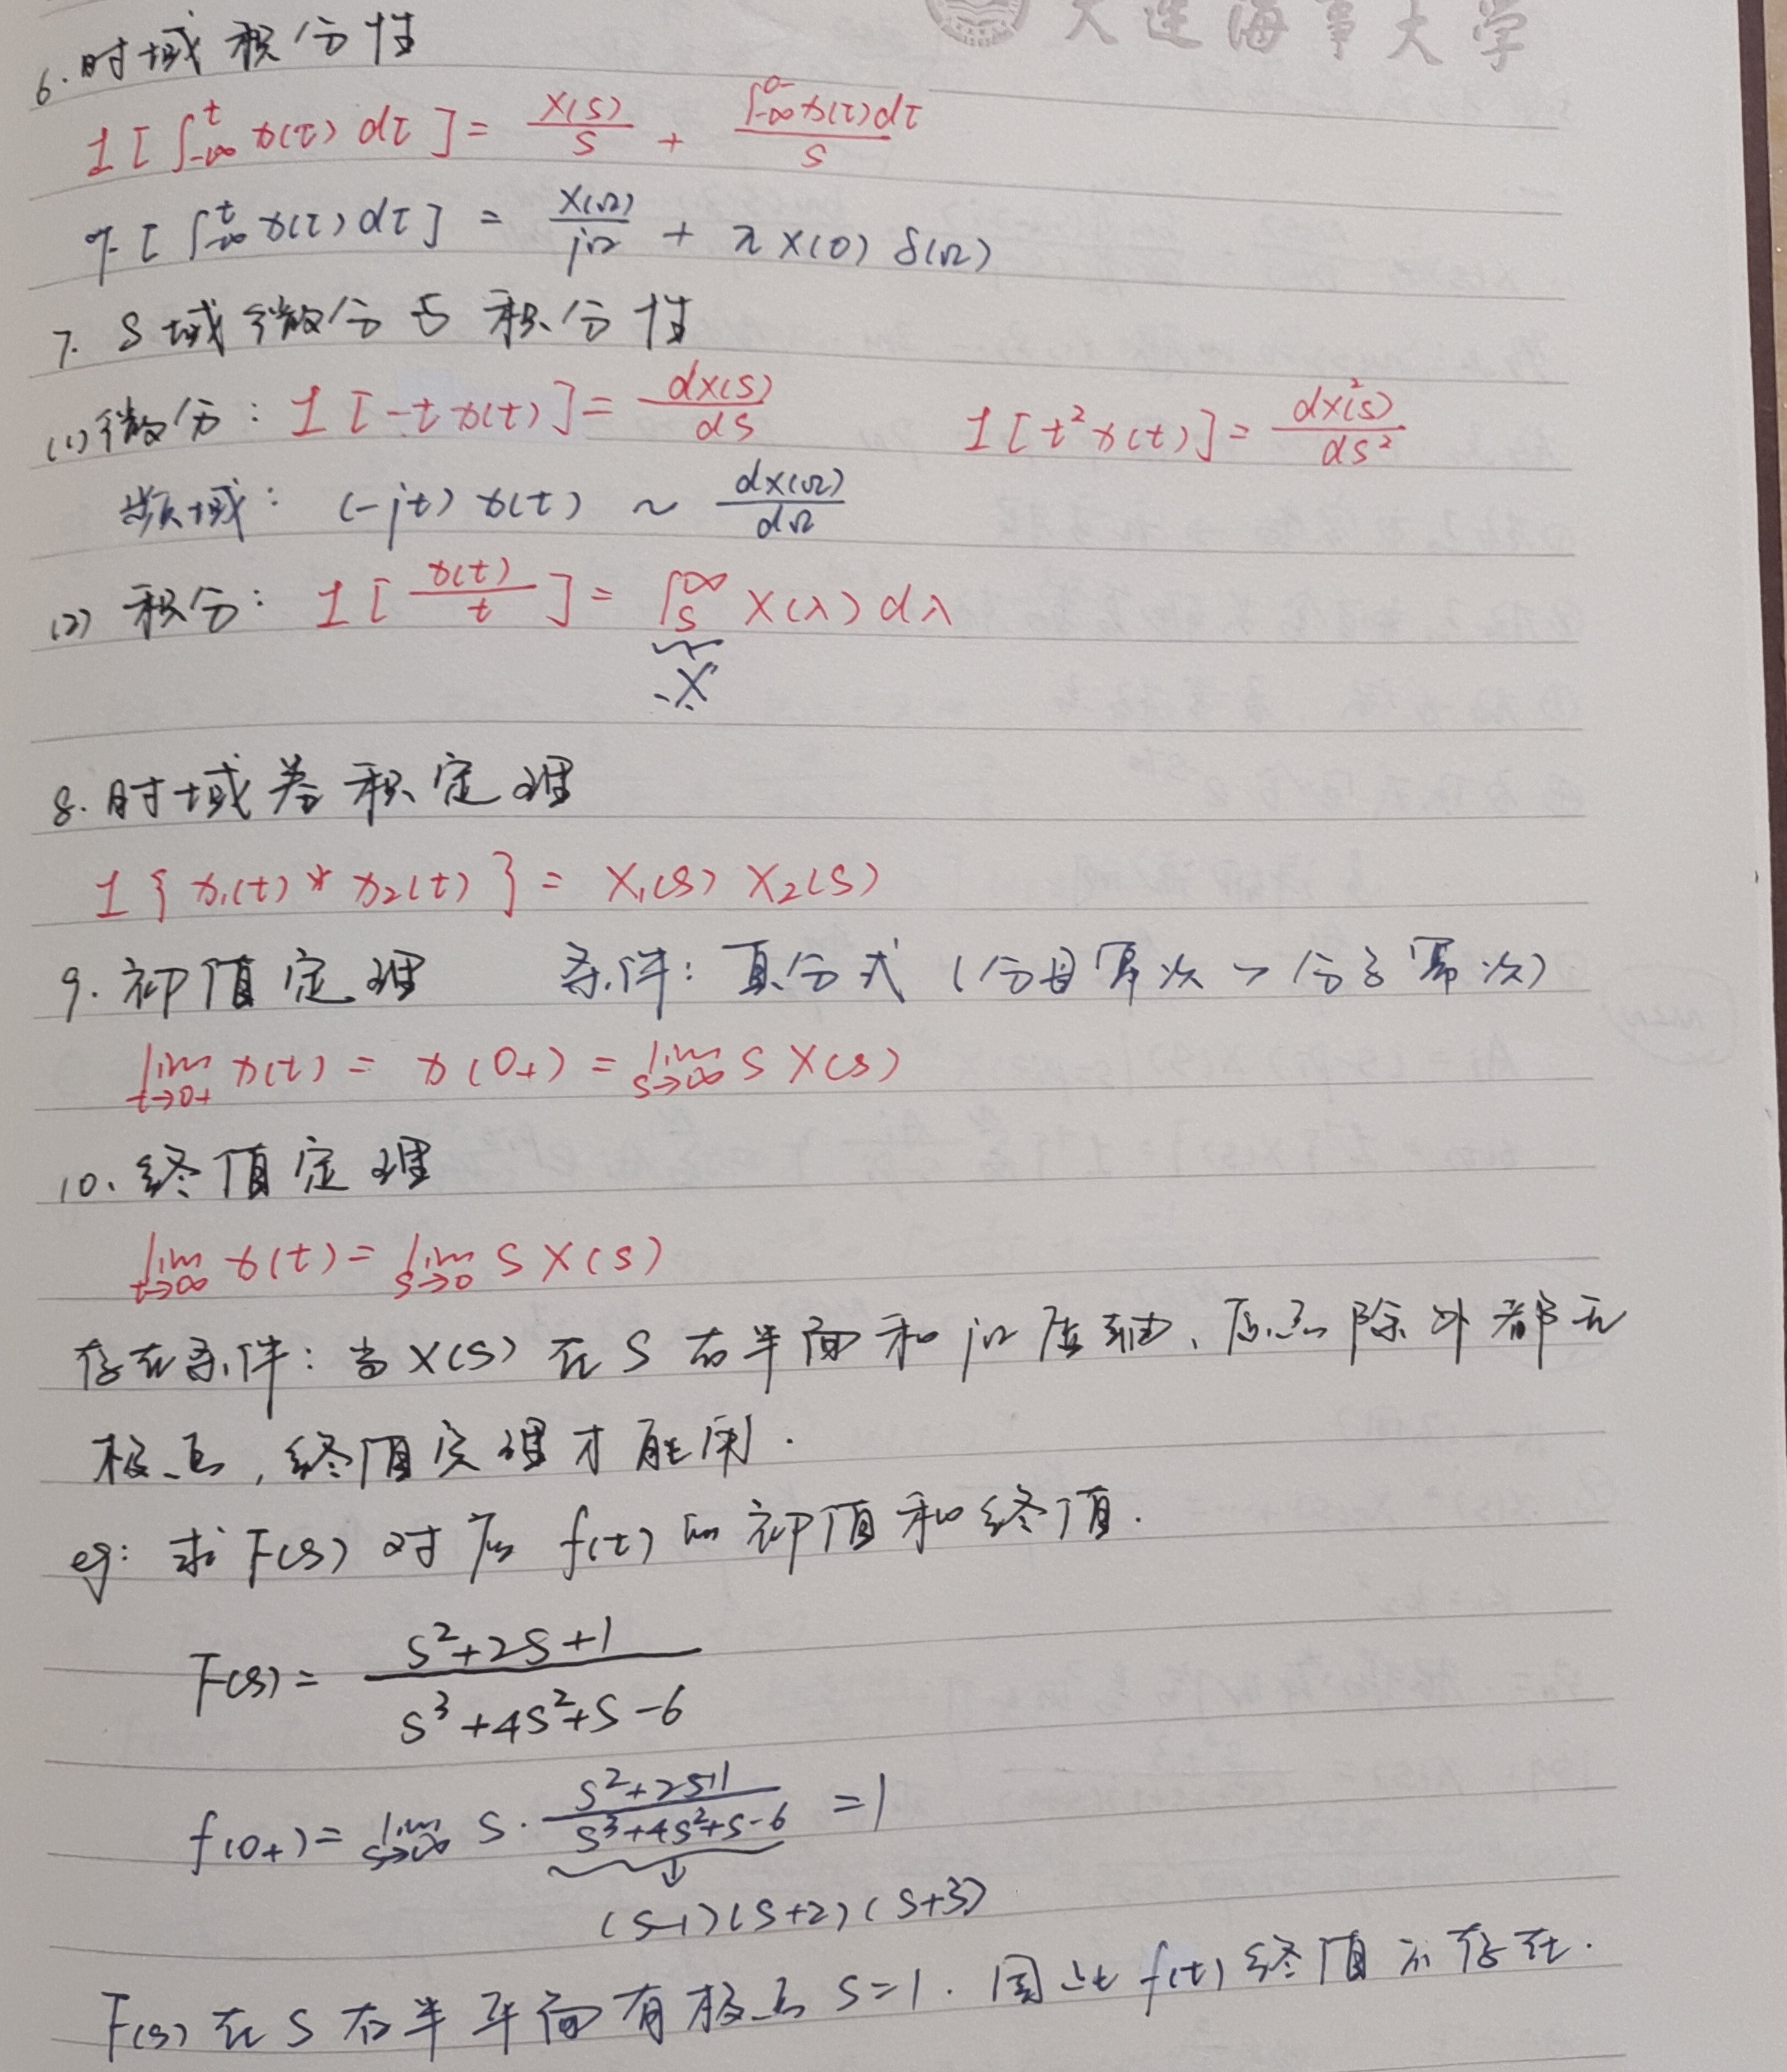 大连海事大学
6. 时域积分性
1[∫_{-∞}^{t} x(τ)dτ] = X(s)/s + ∫_{-∞}^{0-} x(τ)dτ / s
F[∫_{-∞}^{t} x(τ)dτ] = X(Ω)/jΩ + πX(0)δ(Ω)
7. S域微分与积分性
(1) 微分: 1[-t x(t)] = dX(s)/ds 1[t² x(t)] = dX²(s)/ds²
频域: (-jt) x(t) ~ dX(Ω)/dΩ
(2) 积分: 1[x(t)/t] = ∫_{s}^{∞} X(λ)dλ
※
8. 时域卷积定理
1{x₁(t) * x₂(t)} = X₁(s) X₂(s)
9. 初值定理 条件: 真分式 (分母幂次 > 分子幂次)
lim_{t→0+} x(t) = x(0+) = lim_{s→∞} s X(s)
10. 终值定理
lim_{t→∞} x(t) = lim_{s→0} s X(s)
存在条件: 当X(s)在S右半面和jΩ虚轴、原点除外都无
极点, 终值定理才能用.
eg: 求F(s)对应f(t)的初值和终值.
F(s) = (s²+2s+1)/(s³+4s²+s-6)
f(0+) = lim_{s→∞} s · (s²+2s+1)/(s³+4s²+s-6) = 1
↓
(s-1)(s+2)(s+3)
F(s)在S右半平面有极点s=1. 因此f(t)终值不存在.